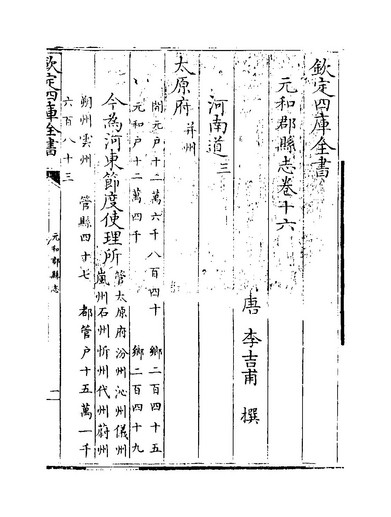 欽定四庫全書
元和郡縣志卷十六
唐 李吉甫 撰
河南道三
太原府 并州
開元戶十二萬六千八百四十 鄉二百四十五
元和戶十二萬四千 鄉二百四十九
今為河東節度使理所 管太原府汾州沁州儀州
嵐州石州忻州代州蔚州
朔州雲州 管縣四十七 都管戶十五萬一千
六百八十三
欽定四庫全書
元和郡縣志
一